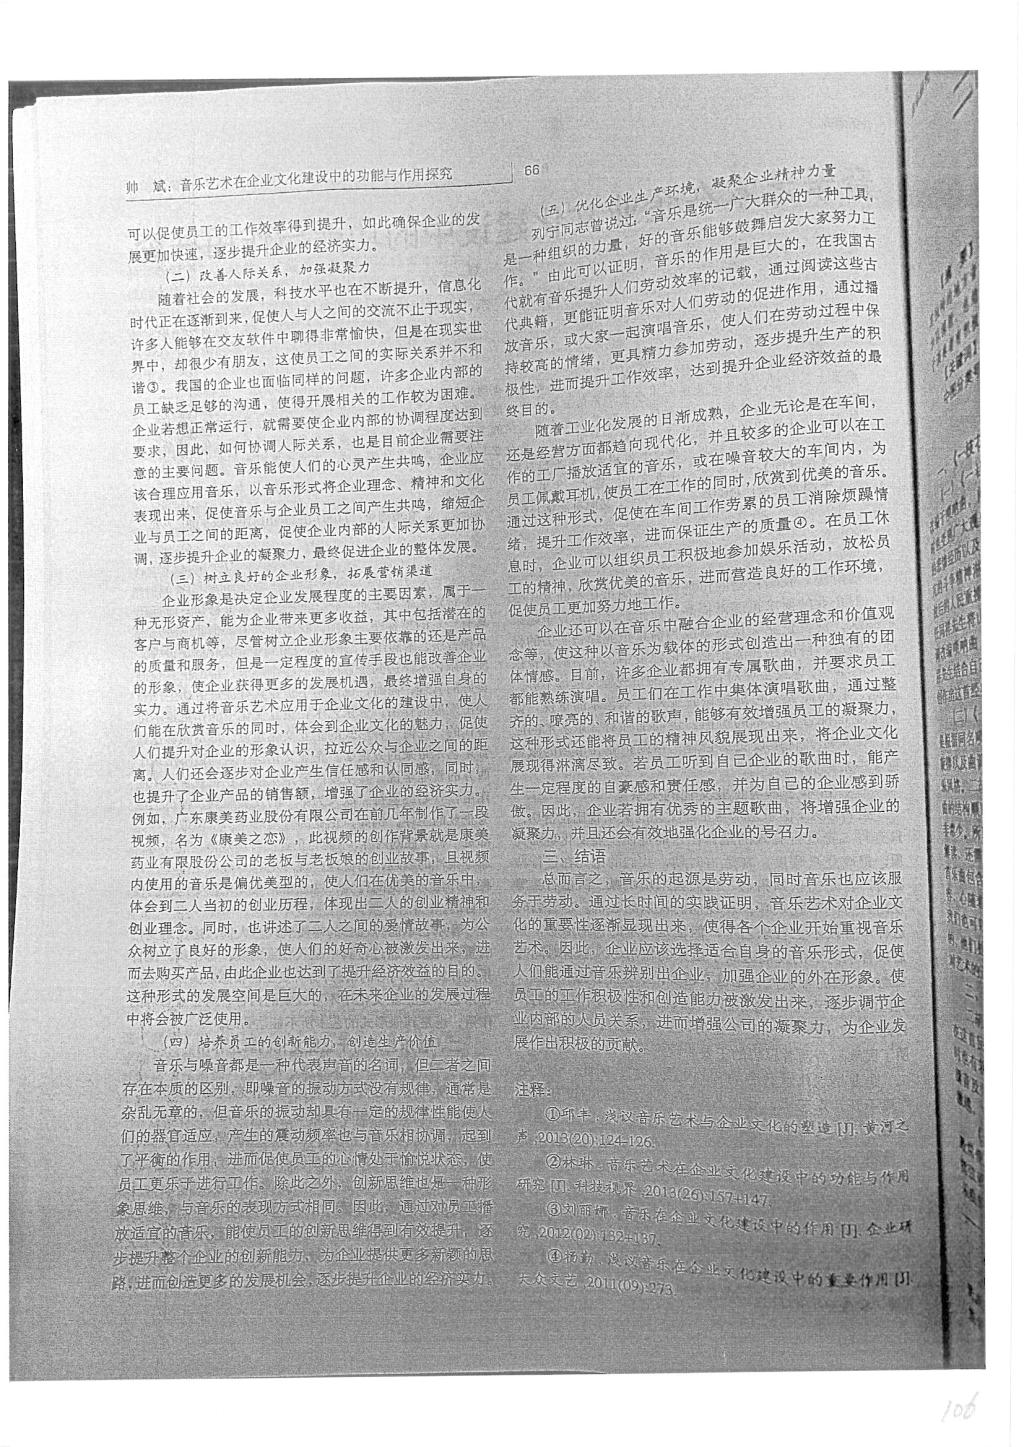 帅 斌：音乐艺术在企业文化建设中的功能与作用探究
66
可以促使员工的工作效率得到提升，如此确保企业的发
展更加快速，逐步提升企业的经济实力。
（二）改善人际关系，加强凝聚力
随着社会的发展，科技水平也在不断提升，信息化
时代正在逐渐到来，促使人与人之间的交流不止于现实，
许多人能够在交友软件中聊得非常愉快，但是在现实世
界中，却很少有朋友，这使员工之间的实际关系并不和
谐③。我国的企业也面临同样的问题，许多企业内部的
员工缺乏足够的沟通，使得开展相关的工作较为困难。
企业若想正常运行，就需要使企业内部的协调程度达到
要求，因此，如何协调人际关系，也是目前企业需要注
意的主要问题。音乐能使人们的心灵产生共鸣，企业应
该合理应用音乐，以音乐形式将企业理念、精神和文化
表现出来，促使音乐与企业员工之间产生共鸣，缩短企
业与员工之间的距离，促使企业内部的人际关系更加协
调，逐步提升企业的凝聚力，最终促进企业的整体发展。
（三）树立良好的企业形象，拓展营销渠道
企业形象是决定企业发展程度的主要因素，属于一
种无形资产，能为企业带来更多收益，其中包括潜在的
客户与商机等，尽管树立企业形象主要依靠的还是产品
的质量和服务，但是一定程度的宣传手段也能改善企业
的形象，使企业获得更多的发展机遇，最终增强自身的
实力。通过将音乐艺术应用于企业文化的建设中，使人
们能在欣赏音乐的同时，体会到企业文化的魅力，促使
人们提升对企业的形象认识，拉近公众与企业之间的距
离。人们还会逐步对企业产生信任感和认同感，同时，
也提升了企业产品的销售额，增强了企业的经济实力。
例如，广东康美药业股份有限公司在前几年制作了一段
视频，名为《康美之恋》，此视频的创作背景就是康美
药业有限股份公司的老板与老板娘的创业故事，且视频
内使用的音乐是偏优美型的，使人们在优美的音乐中，
体会到二人当初的创业历程，体现出二人的创业精神和
创业理念。同时，也讲述了二人之间的爱情故事，为公
众树立了良好的形象，使人们的好奇心被激发出来，进
而去购买产品，由此企业也达到了提升经济效益的目的。
这种形式的发展空间是巨大的，在未来企业的发展过程
中将会被广泛使用。
（四）培养员工的创新能力，创造生产价值
音乐与噪音都是一种代表声音的名词，但二者之间
存在本质的区别，即噪音的振动方式没有规律，通常是
杂乱无章的，但音乐的振动却具有一定的规律性能使人
们的器官适应，产生的震动频率也与音乐相协调，起到
了平衡的作用，进而促使员工的心情处于愉悦状态，使
员工更乐于进行工作。除此之外，创新思维也是一种形
象思维，与音乐的表现方式相同，因此，通过对员工播
放适宜的音乐，能使员工的创新思维得到有效提升，逐
步提升整个企业的创新能力，为企业提供更多新颖的思
路，进而创造更多的发展机会，逐步提升企业的经济实力。
（五）优化企业生产环境，凝聚企业精神力量
列宁同志曾说过，“音乐是统一广大群众的一种工具，
是一种组织的力量，好的音乐能够鼓舞启发大家努力工
作。”由此可以证明，音乐的作用是巨大的，在我国古
代就有音乐提升人们劳动效率的记载，通过阅读这些古
代典籍，更能证明音乐对人们劳动的促进作用，通过播
放音乐，或大家一起演唱音乐，使人们在劳动过程中保
持较高的情绪，更具精力参加劳动，逐步提升生产的积
极性，进而提升工作效率，达到提升企业经济效益的最
终目的。
随着工业化发展的日渐成熟，企业无论是在车间，
还是经营方面都趋向现代化，并且较多的企业可以在工
作的工厂播放适宜的音乐，或在噪音较大的车间内，为
员工佩戴耳机，使员工在工作的同时，欣赏到优美的音乐。
通过这种形式，促使在车间工作劳累的员工消除烦躁情
绪，提升工作效率，进而保证生产的质量④。在员工休
息时，企业可以组织员工积极地参加娱乐活动，放松员
工的精神，欣赏优美的音乐，进而营造良好的工作环境，
促使员工更加努力地工作。
企业还可以在音乐中融合企业的经营理念和价值观
念等，使这种以音乐为载体的形式创造出一种独有的团
体情感。目前，许多企业都拥有专属歌曲，并要求员工
都能熟练演唱。员工们在工作中集体演唱歌曲，通过整
齐的、嘹亮的、和谐的歌声，能够有效增强员工的凝聚力，
这种形式还能将员工的精神风貌展现出来，将企业文化
展现得淋漓尽致。若员工听到自己企业的歌曲时，能产
生一定程度的自豪感和责任感，并为自己的企业感到骄
傲。因此，企业若拥有优秀的主题歌曲，将增强企业的
凝聚力，并且还会有效地强化企业的号召力。
三、结语
总而言之，音乐的起源是劳动，同时音乐也应该服
务于劳动。通过长时间的实践证明，音乐艺术对企业文
化的重要性逐渐显现出来，使得各个企业开始重视音乐
艺术。因此，企业应该选择适合自身的音乐形式，促使
人们能通过音乐辨别出企业，加强企业的外在形象。使
员工的工作积极性和创造能力被激发出来，逐步调节企
业内部的人员关系，进而增强公司的凝聚力，为企业发
展作出积极的贡献。
注释：
①邱丰.浅议音乐艺术与企业文化的塑造[J].黄河之
声,2013(20):124-126.
②林琳.音乐艺术在企业文化建设中的功能与作用
研究[J].科技视界,2013(26):157+147.
③刘丽娜.音乐在企业文化建设中的作用[J].企业研
究,2012(02):132+137.
④杨勤.浅议音乐在企业文化建设中的重要作用[J].
大众文艺,2011(09):273.
106